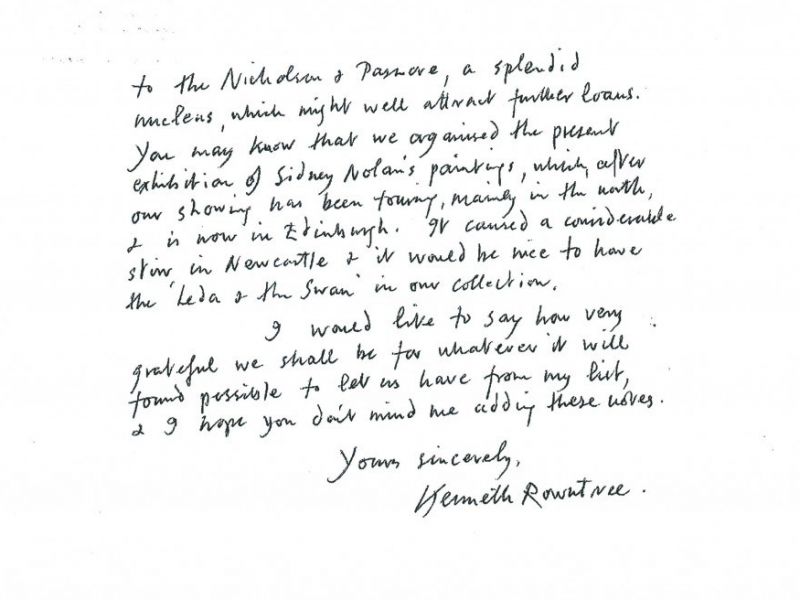 to the Nicholson & Pasmore, a splendid
nucleus, which might well attract further loans.
You may know that we organised the present
exhibition of Sidney Nolan's paintings, which, after
our showing has been touring, mainly in the north,
& is now in Edinburgh. It caused a considerable
stir in Newcastle & it would be nice to have
the 'Leda & the Swan' in our collection.
I would like to say how very
grateful we shall be for whatever it will
found possible to let us have from my list,
& I hope you don't mind me adding these notes.
Yours sincerely,
Kenneth Rowntree.